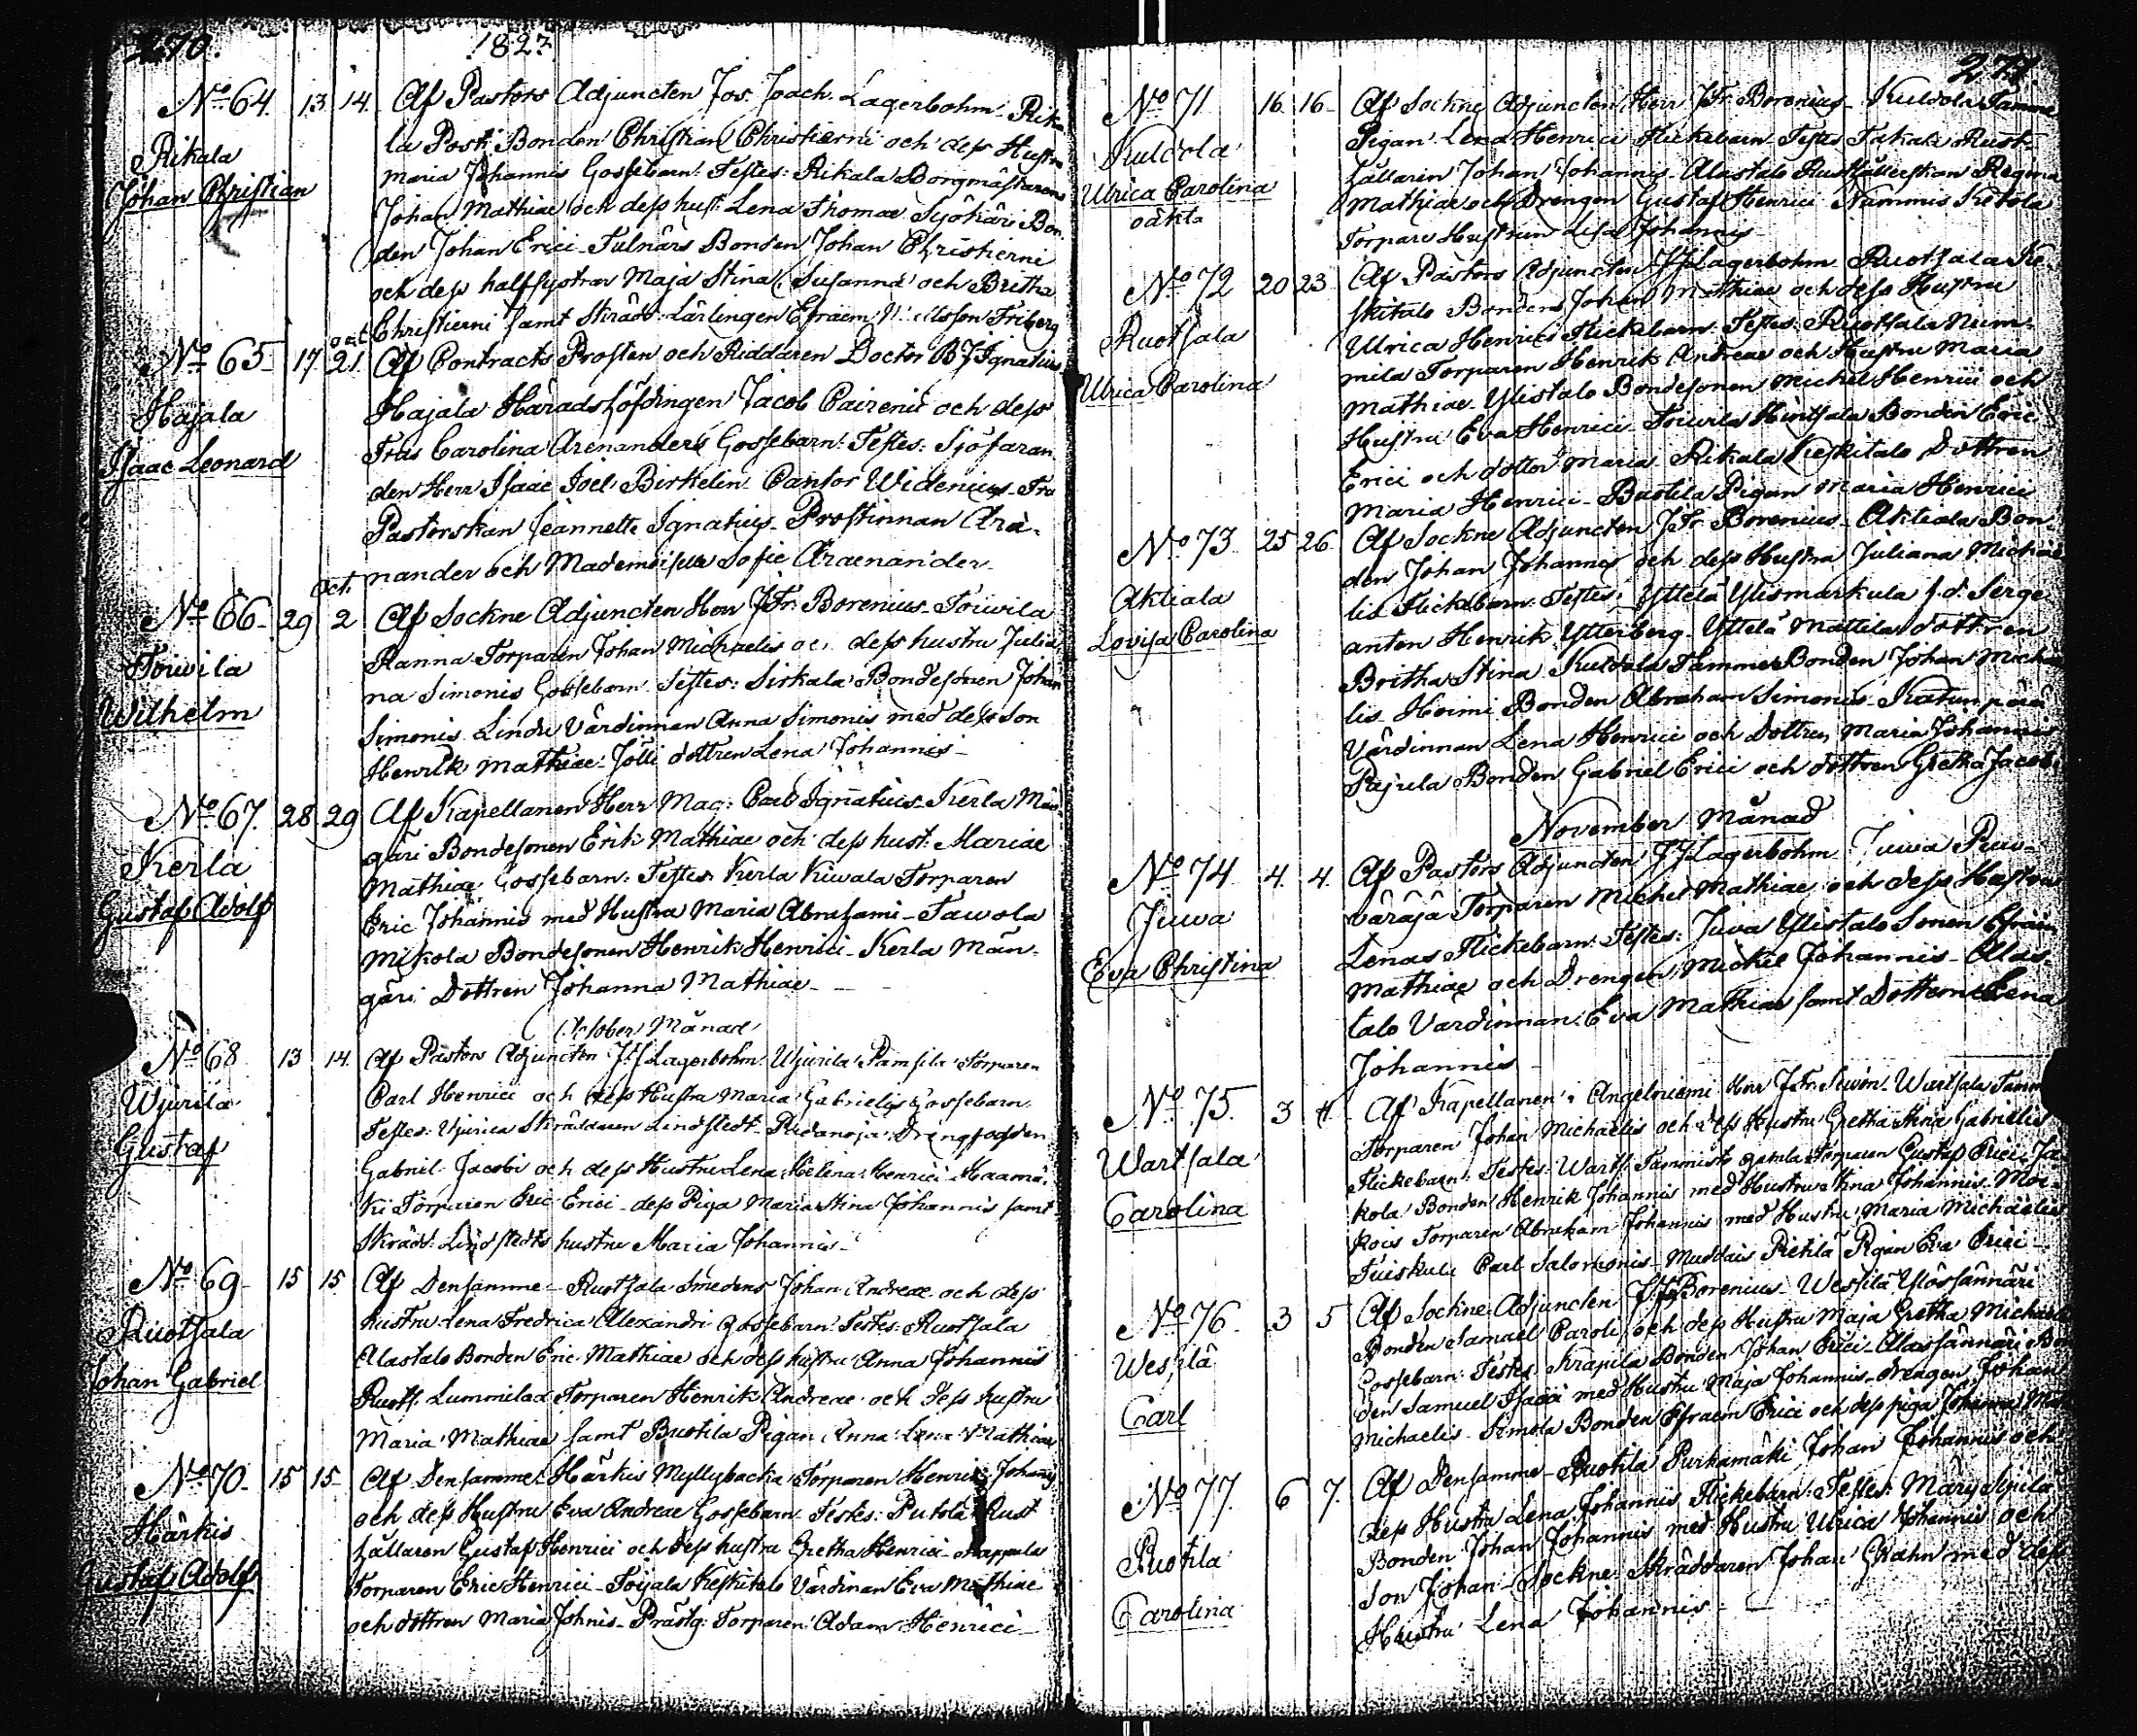 270.
1823.
No 64. 13 14. Af Pastors Adjuncten Jos. Joach. Lagerbohm. Rika
Rikala
Johan Christian
la Posti Bonden Christian Christierni och dess Hustru
Maria Johannis Gossebarn. Testes: Rikala Borgmästarens
Johan Mathiae och dess hust. Lena Thomae Syökäri Bon
den Johan Erici. Tulnärs Bonden Johan Christierni
och dess halfsystrar Maja Stina, Susanna och Britha
Christierni samt Skrädd. Lärlingen Efraim Friberg
Oct
No 65. 17. 21. Af Contracts Prosten och Riddaren Doctor BJ Ignatius
Hajala
Isaac Leonard
Hajala Häradshöfdingen Jacob Pairenii och dess
Frus Carolina Arenanders Gossebarn. Testes: Sjöfaran
den Herr Isaac Joel Birkelin. Cantor Widenius. Fru
Pastorskan Jeannette Ignatius. Prostinnan Are
nander och Mademoiselle Sofie Araenander.
Oct.
No 66. 29 2 Af Sockne Adjuncten Herr J Fr. Borenius. Toiwila
Toiwila
Wilhelm
Ranna Torparen Johan Michaelis oc dess hustru Julia
na Simonis Gossebarn. Testes: Sirkala Bondesonen Johan
Simonis. Lindu Värdinnan Anna Simonis med dess Son
Henrik Mathiae. Jölli dottren Lena Johannis
No 67. 28. 29 Af Kapellanen Herr Mag: Carl Ignatius. Kerla Män
Kerla
Gustaf Adolf
gäri Bondesonen Erik Mathiae och dess hust. Mariae
Mathiae Gossebarn. Testes. Kerla Kiwala Torparen
Eric Johannis med Hustru Maria Abrahami. Tawola
Mikola Bondesonen Henrik Henrici. Kerla Män
gäri Dottren Johanna Mathiae
October Månad
No 68 13 14. Af Pastors Adjuncten JJ Lagerbohm. Wjurila Pamsila Torparen
Wjurila
Gustaf
Carl Henrici och dess Hustru Maria Gabrielis Gossebarn.
Testes: Skräddaren Lindstedt. Ridanoja Drengsfogden
Gabriel Jacobi och dess Hustru Lena Helena Henrici. Haamä
ki Torparen Eric Erici. dess Piga Maria Stina Johannis samt
Skrädd. Lindstedts hustru Maria Johannis
No 69. 15 15. Af Densamme. Ruotsala Smedens Johan Andreae och dess
Ruotsala
Johan Gabriel
hustru Lena Fredrica Alexandri Gossebarn. Testes: Ruotsala
Alastalo Bonden Eric Mathiae och dess hustru Anna Johannis
Ruots. Lummilax Torparen Henrik Andreae och dess hustru
Maria Mathiae samt Buotila Pigan Anna Lena Mathiae
No 70. 15 15. Af Densamme. Härkis Myllybacka Torparen Henrik Johannis
Härkis
Gustaf Adolf
och dess Hustru Eva Andreae Gossebarn. Testes: Putola Rust
hållaren Gustaf Henrici och dess hustru Gretha Henrici. Kappula
Torparen Eric Henrici. Toijala Keskitalo Värdinan Eva Mathiae
och dottren Maria Johnis. Prästg. Torparen Adam Henrici
271.
No 71 16. 16. Af Sockne Adjuncten Herr J Fr. Borenius. Kuldola Tamme
Kuldola
Ulrica Carolina
oäkta
Pigan Lena Henrici Flickebarn. Testes Takala Rust
hållarin Johan Johannis. Alastalo Rusthållerskan Regina
Mathiae och Drengen Gustaf Henrici. Nummis Ketola
Torpare Hustrun Lisa Johannis
No 72 20 23. Af Pastors Adjuncten JJ Lagerbohm. Ruotsala Ke
Ruotsala
Ulrica Carolina
skitalo Bondens Johan Mathiae och dess Hustru
Ulrica Henrici Flickebarn. Testes: Ruotsala Num
mila Torparen Henrik Andreae och Hustru Maria
Mathiae. Ylistalo Bondesonen Michel Henrici och
Hustru Eva Henrici. Toiwila Hintsala Bonden Eric
Erici och dotter Maria. Rikala Keskitalo Dottren
Maria Henrici. Buotila Pigan Maria Henrici
No 73. 25 26. Af Sockne Adjuncten J Fr. Borenius. Aktiala Bon
Aktiala
Lovisa Carolina
den Johan Johannis och dess Hustru Juliana Michae
lis Flickebarn. Testes: Yttelä Ylismarkula f.d. Serge
anten Henrik Ytterberg. Yttelä Mattila dottren
Britha Stina. Kuldola Tamme Bonden Johan Micha
lis. Hoimi Bonden Abraham Simonis. Katunperä
Värdinnan Lena Henrici och Dottren Maria Johannis
Pajula Bonden Gabriel Erici och dottren Gretha Jacobi
November Månad
No 74 4. 4. Af Pastors Adjuncten JJ Lagerbohm. Juwa Puu
Juwa
Eva Christina
väräjä Torparen Michel Mathiae och dess Hustru
Lenas Flickebarn. Testes: Juwa Ylistalo Sonen Efraim
Mathiae och Drengen Mickel Johannis. Alas
talo Vardinnan Eva Mathiae samt Dottern Lena
Johannis
No 75. 3 4. Af Kapellanen i Angelniemi Herr J. Fr. Wartsala Tamm
Wartsala
Carolina
Torparen Johan Michaelis och dess Hustru Gretha Stina Gabrielis
Flickebarn. Testes: Warts. Tammisto gamla Torparen Gustaf Erici. Ja
kola Bonden Henrik Johannis med Hustru Stina Johannis. Moi
kois Torparen Abraham Johannis med Hustru Maria Michaelis
Tuiskula Carl Salomonis. Muddais Pietilä Pigan Eva Erici
No 76. 3 5 Af Sockne Adjuncten J. Fr Borenius. Westilä Ylössännäri
Westilä
Carl
Bonden Samuel Caroli och dess Hustru Maja Gretha Michaelis
Gossebarn. Testes. Krapila Bonden Johan Erici. Alassännäri Bon
den Samuel Isacci med Hustru Maja Johannis. drengen Johan
Michaelis. Simola Bonden Efraem Erici och dess piga Johanna Mat
No 77. 6 7. Af Densamme. Ruotila Purikamäki Johan Johannis och
Ruotila
Carolina
dess Hustru Lena Johannis Flickebarn. Testes: Märy Sipilä
Bonden Johan Johannis med Hustru Ulrica Johannis och
Son Johan. Sockne Skräddaren Johan Grahn med dess
Hustru Lena Johannis